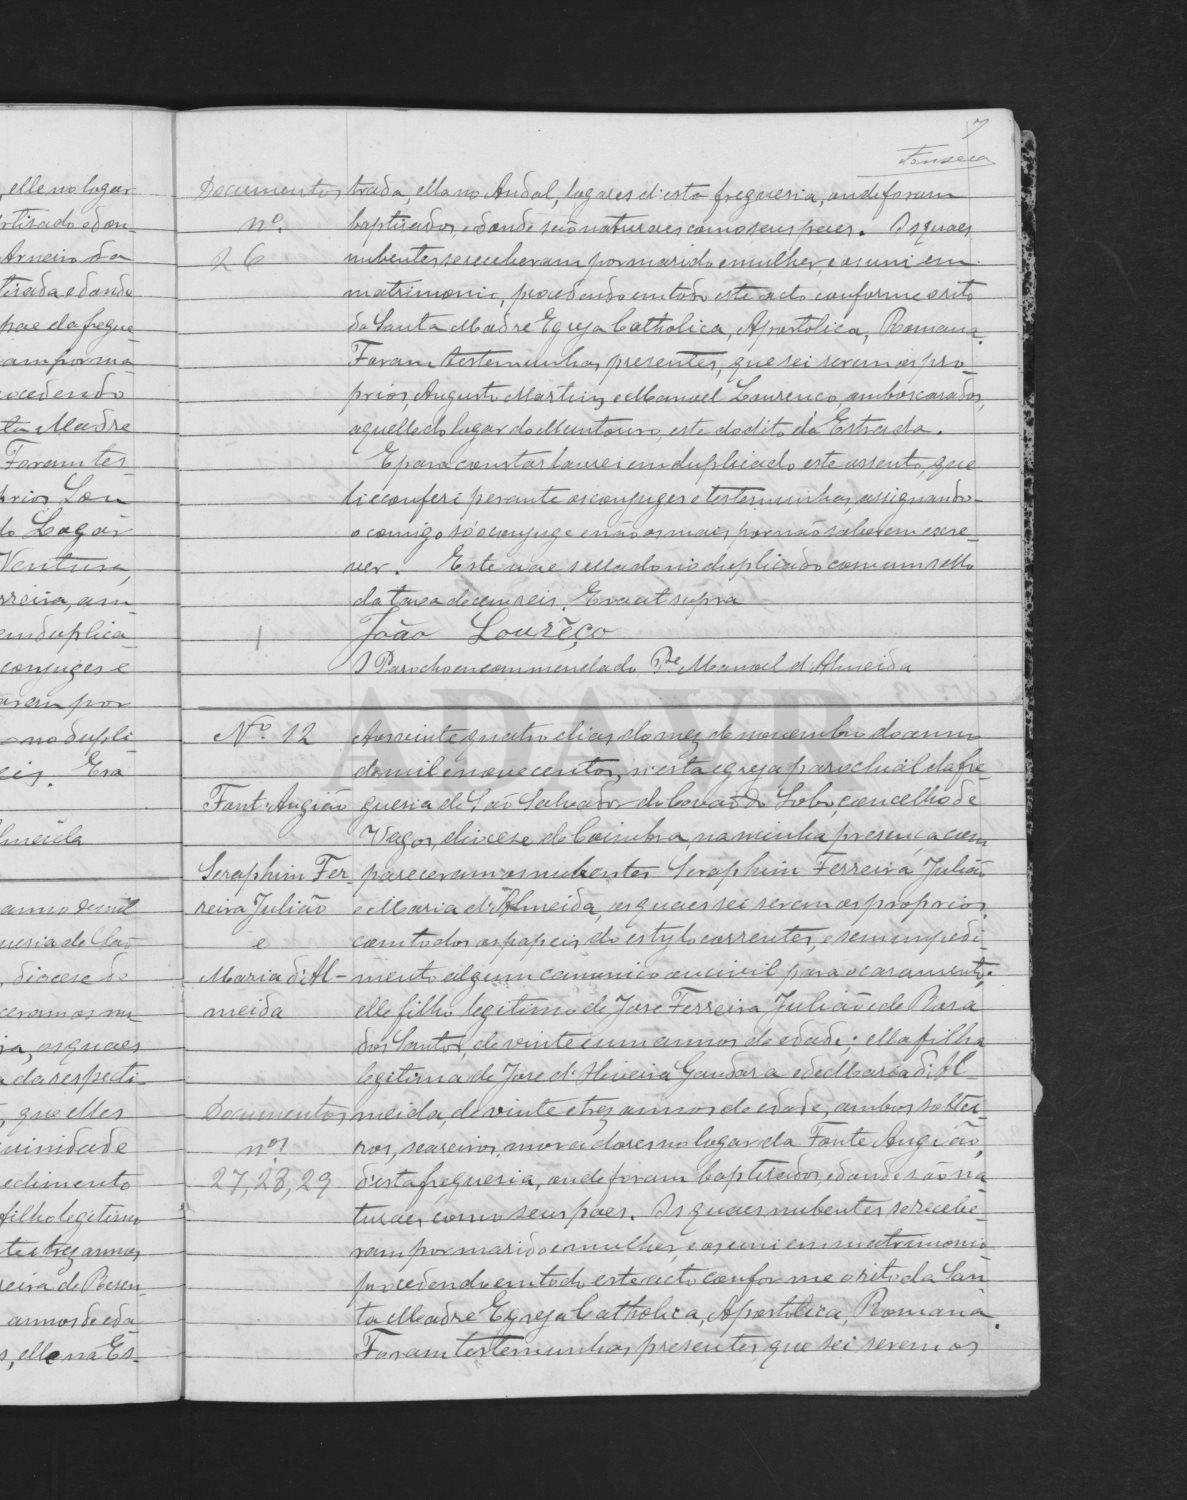 7
Fonseca
, elle no logar
ptisado e don-
Arneiro da
tisada e donde
pae da fregue-
am por ma-
rocedendo
ta Madre
Foram tes-
prios, Lou
do Logar
Ventura,
rreira, am-
em duplica-
conjuges e
aram por
no dupli-
eis. Era
lmeida
anno de mil
uesia de São
, diocese de
ceram os nu-
ia, os quaes
a da respecti-
, que elles
uinidade
edimento
filho legitimo
te e trez annos,
reira de Resen-
annos de eda-
s, elle na Es-
Documentos
nº.
26
trada, ella no Andal, logares d'esta freguesia, onde foram
baptisados, e donde são naturaes como seus paes. Os quaes
nubentes se receberam por marido e mulher, e os uni em
matrimonio, procedendo em todo este acto conforme o rito
da Santa Madre Egreja Catholica, Apostolica, Romana.
Foram testemunhas presentes, que sei serem os pro-
prios, Augusto Martins e Manoel Lourenco, ambos casados,
aquelle do logar do Montouro, este do dito da Estrada.
E para constar lavrei em duplicado este assento, que
li e conferi perante os conjuges e testemunhas, assignando-
o comigo só o conjuge e não os mais por não saberem escre-
ver. Este vae sellado no duplicado com um sello
da taxa de cem reis. Era ut supra
João Lourẽço
O Parocho encommendado Pe. Manoel d'Almeida
Nº. 12
Font'Angião
Seraphim Fer-
reira Julião
e
Maria d'Al-
meida
Documentos
nºs
27, 28, 29
Aos vinte quatro dias do mez de novembro do anno
de mil e novecentos, n'esta egreja parochial da fre-
guesia de São Salvador do Covão do Lobo, concelho de
Vagos, diocese de Coimbra, na minha presença com-
pareceram os nubentes Seraphim Ferreira Julião
e Maria d'Almeida, os quaes sei serem os proprios,
com todos os papeis do estylo correntes, e sem impedi-
mento algum canonico ou civil para o casamento;
elle filho legitimo de Jose Ferreira Julião e de Rosa
dos Santos, de vinte e um annos de edade; ella filha
legitima de Jose d'Oliveira Gandara e de Maria d'Al-
meida, de vinte e trez annos de edade, ambos soltei-
ros, seareiros, moradores no logar da Fonte Angião,
d'esta freguesia, onde foram baptisados, e donde são na-
turaes como seus paes. Os quaes nubentes se recebe-
ram por marido e mulher, e os uni em matrimonio,
procedendo em todo este acto conforme o rito da San-
ta Madre Egreja Catholica, Apostolica, Romana.
Foram testemunhas presentes, que sei serem os
ADAVR